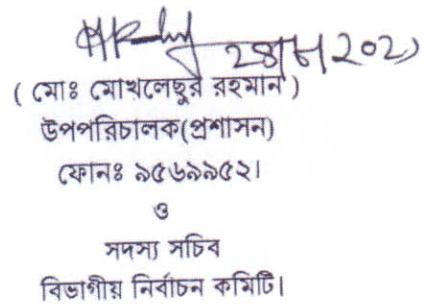 ( মোঃ মোখলেছুর রহমান )
উপপরিচালক(প্রশাসন)
ফোনঃ ৯৫৬৯৯৫২।
ও
সদস্য সচিব
বিভাগীয় নির্বাচন কমিটি।